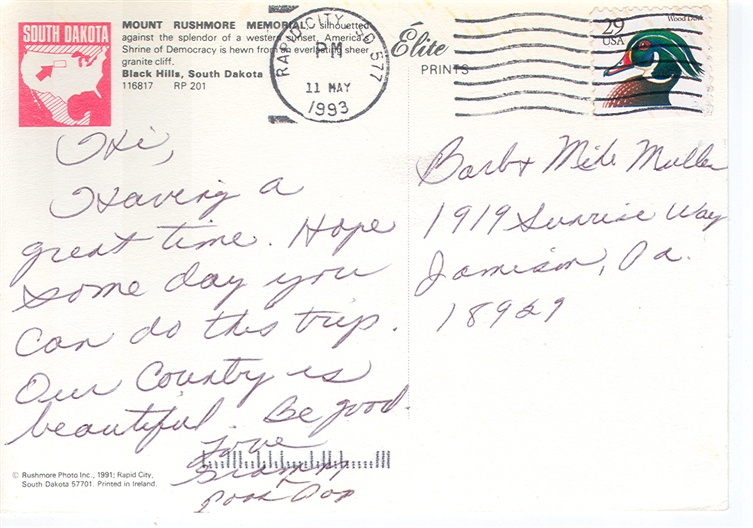 SOUTH DAKOTA
MOUNT RUSHMORE MEMORIAL, silhouetted
against the splendor of a western sunset, America's
Shrine of Democracy is hewn from an everlasting sheer
granite cliff.
Black Hills, South Dakota
116817 RP 201
RAPID CITY, SD 577
PM
11 MAY
1993
Élite
PRINTS
29
USA
Wood Duck
Hi,
Having a
great time. Hope
some day you
can do this trip.
Our County is
beautiful. Be good.
Love
Barb & Mike Muller
1919 Sunrise Way
Jamison, Pa.
18929
© Rushmore Photo Inc., 1991; Rapid City,
South Dakota 57701. Printed in Ireland.